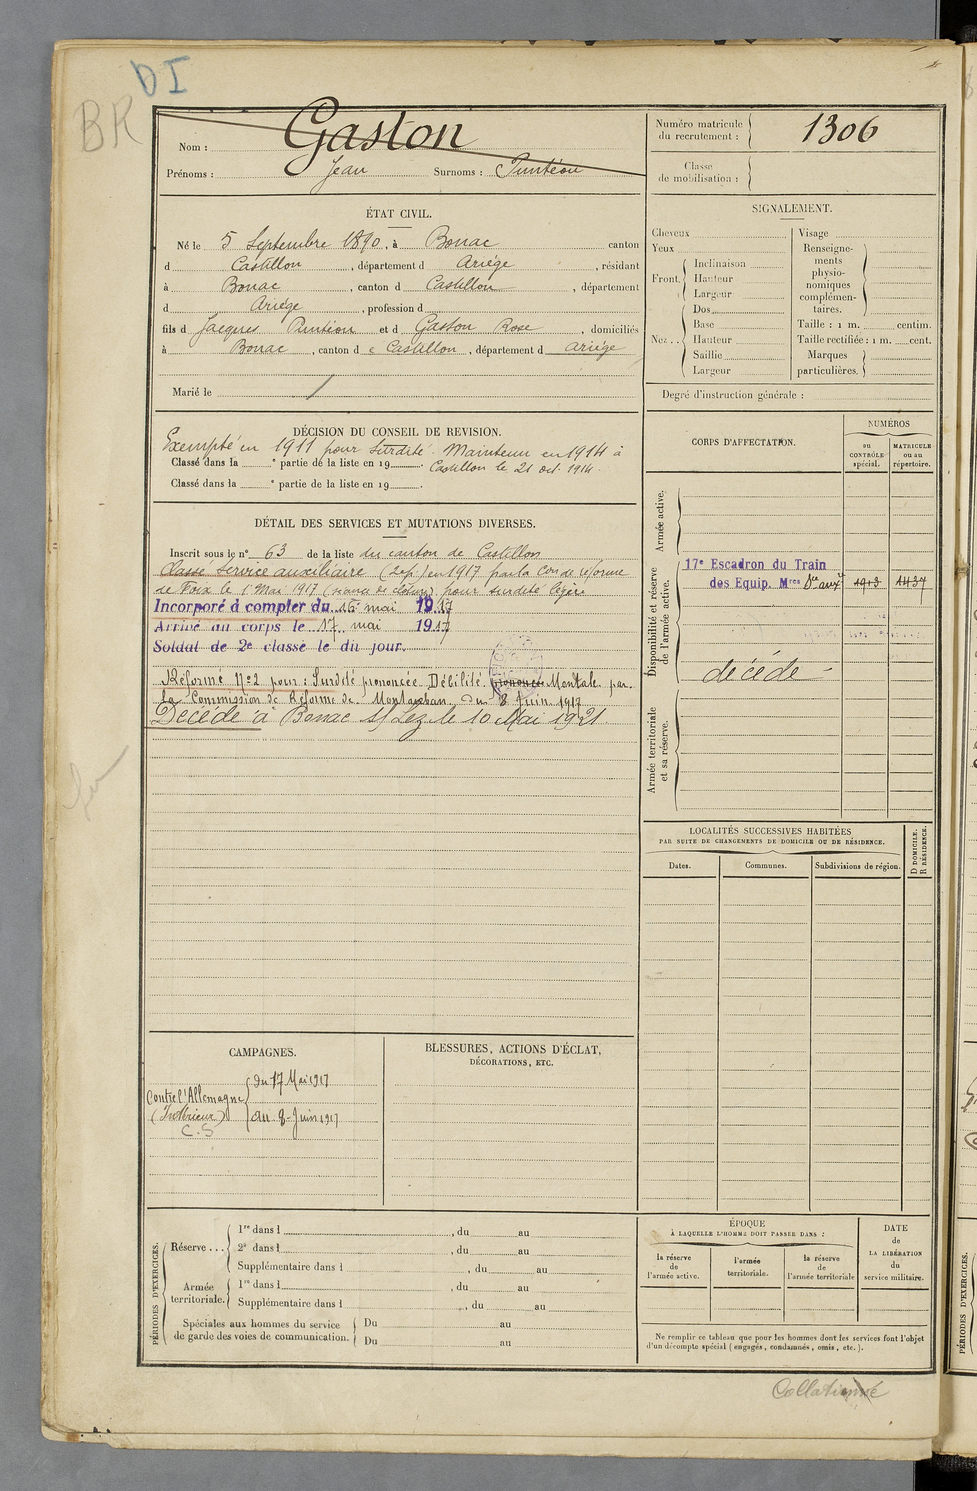 DI
BR
Nom : Gaston
Prénoms : Jean Surnoms : Puntéou
Numéro matricule du recrutement : 1306
Classe de mobilisation :
ÉTAT CIVIL.
Né le 5 Septembre 1890, à Bonac canton
d Castillon, département d Ariège, résidant
à Bonac, canton d Castillon, département
d Ariège, profession d
fils d Jacques et d Gaston Rose, domiciliés
à Bonac, canton d e Castillon, département d Ariège
Marié le
SIGNALEMENT.
Cheveux
Yeux
Front. Inclinaison
Hauteur
Largeur
Nez .. Dos
Base
Hauteur
Saillie
Largeur
Visage
Renseigne-
ments
physio-
nomiques
complémen-
taires.
Taille : 1 m. centim.
Taille rectifiée : 1 m. cent.
Marques
particulières.
Degré d'instruction générale :
DÉCISION DU CONSEIL DE REVISION.
Exempté en 1911 pour Surdité. Maintenu en 1914 à
Classé dans la e partie de la liste en 19 Castillon le 21 oct. 1914.
Classé dans la e partie de la liste en 19
CORPS D'AFFECTATION.
NUMÉROS
au CONTRÔLE spécial.
MATRICULE ou au répertoire.
Armée active.
Disponibilité et réserve de l'armée active.
17e Escadron du Train
des Equip. Mres 1913 1437
décédé
Armée territoriale et sa réserve.
DÉTAIL DES SERVICES ET MUTATIONS DIVERSES.
Inscrit sous le n° 63 de la liste du canton de Castillon
Classé Service auxiliaire en 1917 par la Con de réforme
de Foix le 1 Mai 1917 pour surdité légère
Incorporé à compter du 16 mai 1917
Arrivé au corps le 17 mai 1917
Soldat de 2e classe le dit jour.
Réformé N°2 pour : Surdité prononcée. Débilité prononcée Mentale par
la Commission de Réforme de Montauban du 8 Juin 1917
Décédé à Bonac s/ Lez le 10 Mai 1921.
LOCALITÉS SUCCESSIVES HABITÉES
PAR SUITE DE CHANGEMENTS DE DOMICILE OU DE RÉSIDENCE.
Dates.
Communes.
Subdivisions de région.
D DOMICILE.
R RÉSIDENCE.
CAMPAGNES.
Contre l'Allemagne du 17 Mai 1917
(Intérieur) au 8 Juin 1917
C.S
BLESSURES, ACTIONS D'ÉCLAT,
DÉCORATIONS, ETC.
PÉRIODES D'EXERCICES.
Réserve ... 1re dans l , du au
2e dans l , du au
Supplémentaire dans l , du au
Armée territoriale. 1re dans l , du au
Supplémentaire dans l , du au
Spéciales aux hommes du service Du au
de garde des voies de communication. Du au
ÉPOQUE
À LAQUELLE L'HOMME DOIT PASSER DANS :
la réserve de l'armée active.
l'armée territoriale.
la réserve de l'armée territoriale
DATE
de
LA LIBÉRATION
du
service militaire.
Ne remplir ce tableau que pour les hommes dont les services font l'objet
d'un décompte spécial (engagés, condamnés, omis, etc.).
Collationné
PÉRIODES D'EXERCICES.